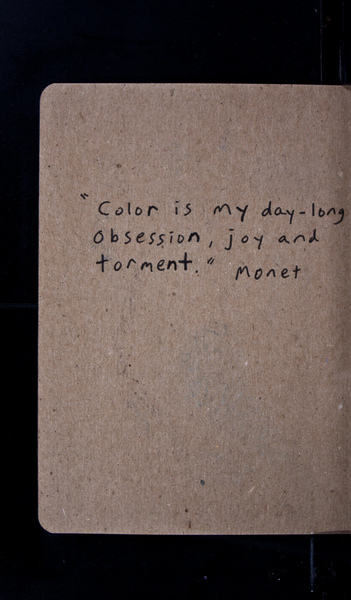 "Color is my day-long
obsession, joy and
torment." Monet